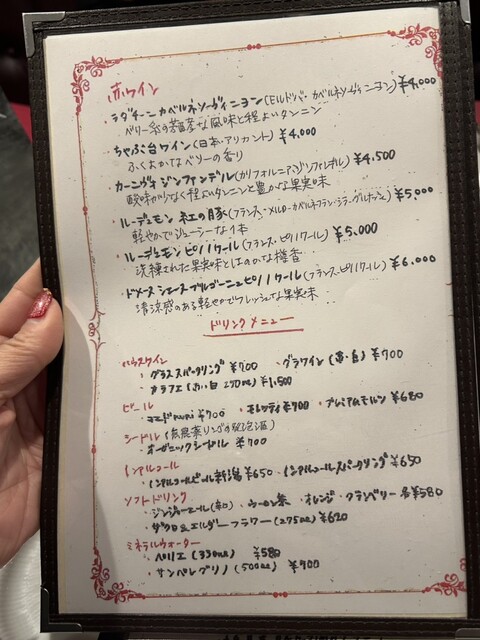 赤ワイン
・ラダチーニ カベルネソーヴィニヨン(モルドバ・カベルネソーヴィニヨン) ¥4,000
ベリー系の芳醇な風味と程よいタンニン
・ちゃぶ台ワイン(日本・アリカント) ¥4,000
ふくよかなベリーの香り
・カーニヴォ ジンファンデル(カリフォルニア・ジンファンデル) ¥4,500
酸味が少なく程よいタンニンと豊かな果実味
・ルーデュモン 紅の豚(フランス・メルロー・カベルネフラン・シラー・グルナッシュ) ¥5,000
軽やかでジューシーな1本
・ルーデュモン ピノノワール(フランス・ピノノワール) ¥5,000
洗練された果実味とほのかな樽香
・ドメーヌ シュヌ ブルゴーニュ ピノノワール(フランス・ピノノワール) ¥6,000
清涼感のある軽やかでフレッシュな果実味
ドリンクメニュー
ハウスワイン
・グラススパークリング ¥700 ・グラスワイン(赤・白) ¥700
・カラフェ(赤い 白 250ml) ¥1,500
ビール
¥700 ・モレッティ ¥700 ・プレミアムモルツ ¥680
シードル(無農薬リンゴの発泡酒)
・オーガニックシードル ¥700
ノンアルコール
・ノンアルコールビール 新潟 ¥650 ・ノンアルコールスパークリング ¥650
ソフトドリンク
・ジンジャーエール(辛口) ・ウーロン茶 ・オレンジ ・クランベリー 各¥580
・ザクロ&エルダーフラワー(275ml) ¥620
ミネラルウォーター
・ペリエ(330ml) ¥580
・サンペレグリノ(500ml) ¥700